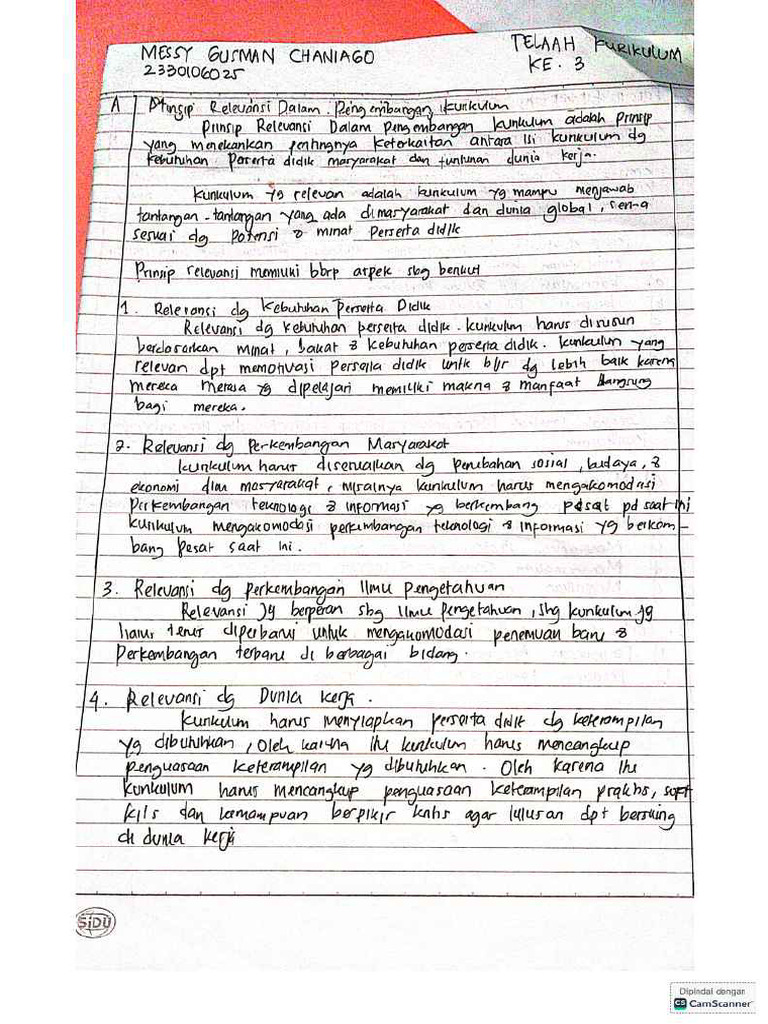 MESSY GUSMAN CHANIAGO
2330106025
TELAAH KURIKULUM
KE. 3
A Prinsip Relevansi Dalam Pengembangan kurikulum
Prinsip Relevansi Dalam Pengembangan kurikulum adalah Prinsip
yang menekankan pentingnya keterkaitan antara isi kurikulum dg
kebutuhan Peserta didik masyarakat dan tuntunan dunia kerja.
Kurikulum yg relevan adalah kurikulum yg mampu menjawab
tantangan-tantangan yang ada dimasyarakat dan dunia global, serta
sesuai dg potensi & minat Perserta didik
Prinsip relevansi memiliki bbrp aspek sbg berikut
1. Relevansi dg Kebutuhan Perseta Didik
Relevansi dg kebutuhan perseita didik. kurikulum harus disusun
berdasarkan minat, bakat & kebutuhan perserta didik. kurikulum yang
relevan dpt memotivasi perserta didik untk bljr dg lebih baik karena
mereka merasa yg dipelajari memiliki makna & manfaat langsung
bagi mereka.
2. Relevansi dg Perkembangan Masyarakat
kurikulum harus disesuaikan dg perubahan sosial, budaya, &
ekonomi dlm masyarakat, misalnya kurikulum harus mengakomodasi
perkembangan teknologi & informasi yg berkembang pesat pd saat ini
kurikulum mengakomodasi perkembangan teknologi & informasi yg berkem-
bang pesat saat ini.
3. Relevansi dg perkembangan Ilmu Pengetahuan
Relevansi yg berperan sbg Ilmu pengetahuan, shg kurikulum jg
harus terus diperbarui untuk mengakomodasi penemuan baru &
Perkembangan terbaru di berbagai bidang.
4. Relevansi dg Dunia Kerja.
kurikulum harus menyiapkan perserta didik dg keterampilan
yg dibutuhkan, Oleh karena itu kurikulum harus mencangkup
penguasaan keterampilan yg dibutuhkan. Oleh karena itu
kurikulum harus mencangkup penguasaan keterampilan praktis, soft
kils dan kemampuan berpikir kritis agar lulusan dpt bersaing
di dunia kerja
SiDU
Dipindai dengan
CS CamScanner